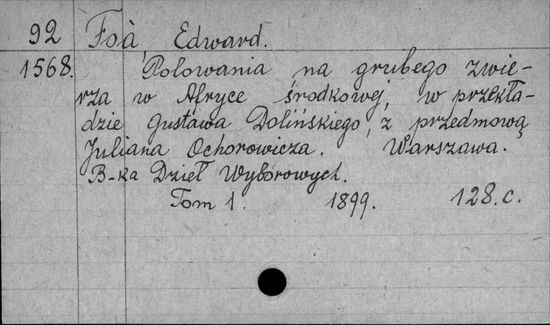 92 Foà, Edward.
1568. Polowania na grubego zwie-
rza w Afryce środkowej, w przekła-
dzie Gustawa Dolińskiego, z przedmową
Juliana Ochorowicza. Warszawa.
B-ka Dzieł Wyborowych.
Tom 1. 1899. 128.c.